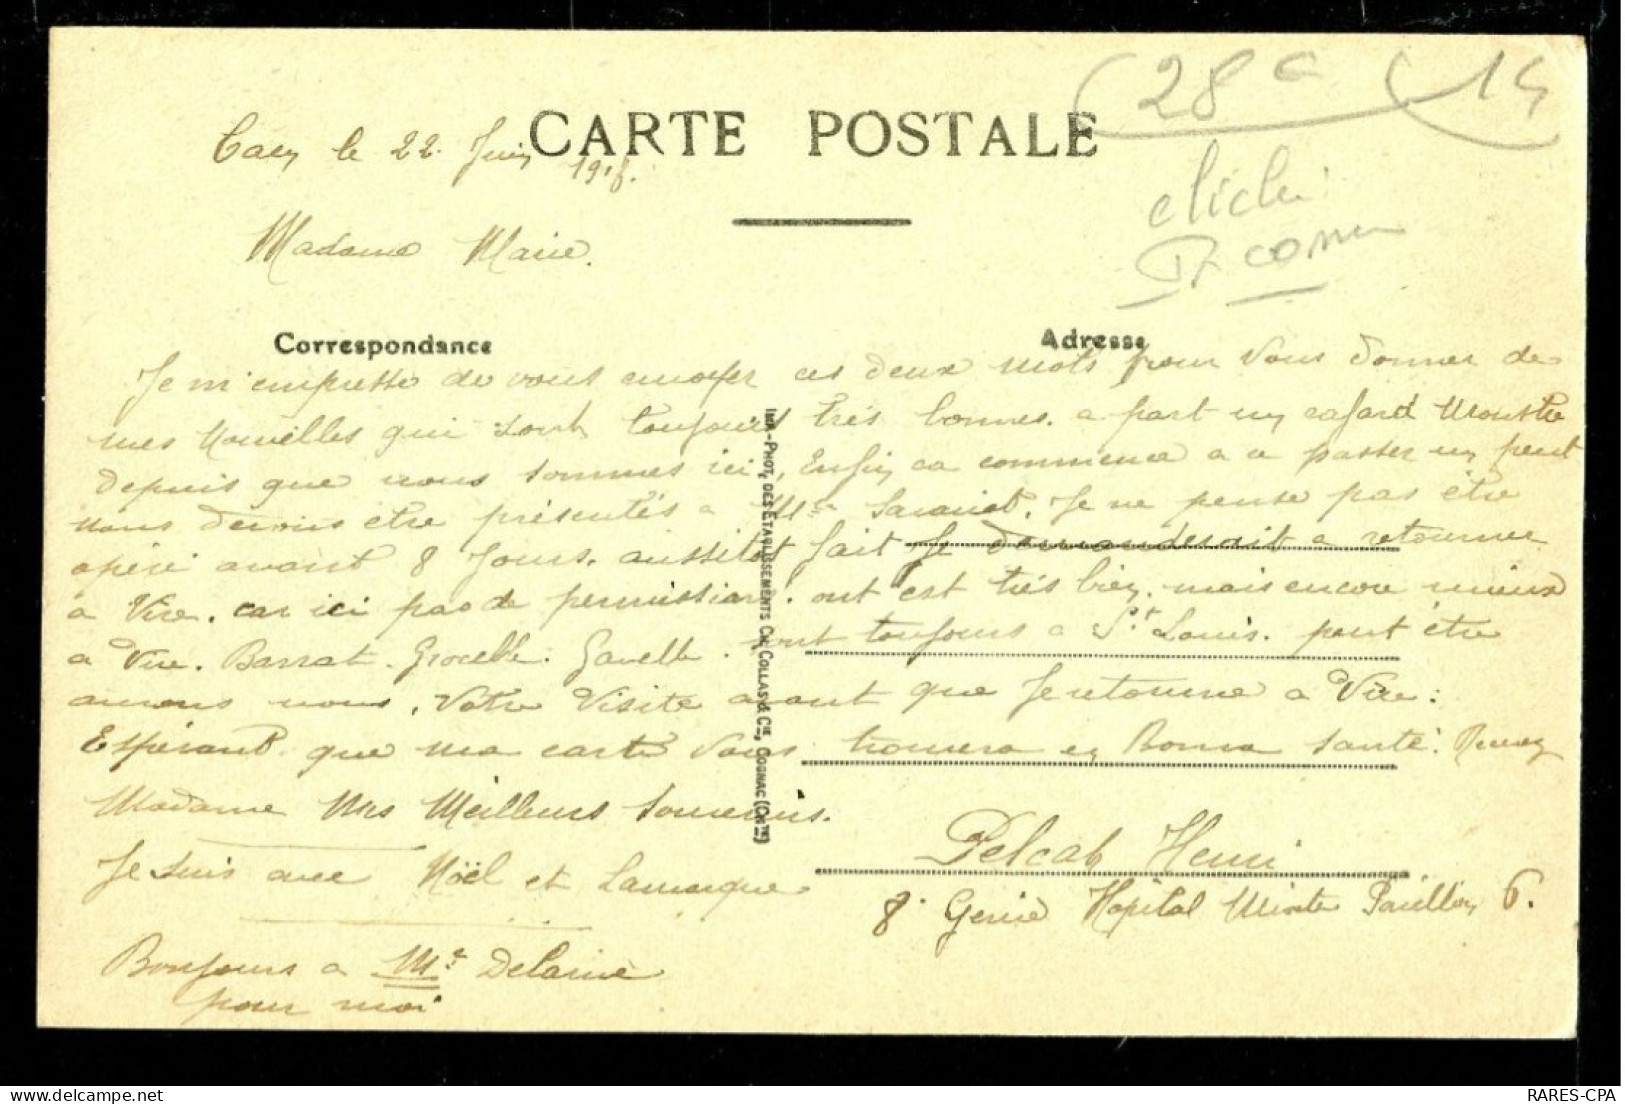 28e 14
CARTE POSTALE
Caen le 22 Juin 1918.
cliché
Madame Marie.
Correspondance
Adresse
Je m'empresse de vous envoyer ces deux mots pour vous donner de
mes nouvelles qui sont toujours très bonnes. a part un cafard Monstre
depuis que nous sommes ici, Enfin ca commence a ce passer un peut
nous devons être présentés a Mr Savariet. Je ne pense pas être
opéré avant 8 Jours. aussitot fait Je demanderait a retourner
a Vire. car ici pas de permissions. ont est très bien. mais encore mieux
a Vire. Barrat. Grocelle. Gavelle. sont toujours a St Louis. peut être
aurons nous, Votre Visite avant que Je retourne a Vire:
Espérant que ma carte Vous trouvera en Bonne santé. Recevez
Madame Mes Meilleurs Souvenirs.
Je suis avec Noël et Lamarque
Delcab Henri
8e Genie Hôpital Mixte Pavillon 6.
Bonjours a Me Delarue
pour moi
IMP.-PHOT. DES ETABLISSEMENTS CH. COLLAS & Cie, COGNAC (Chte)
RARES-CPA